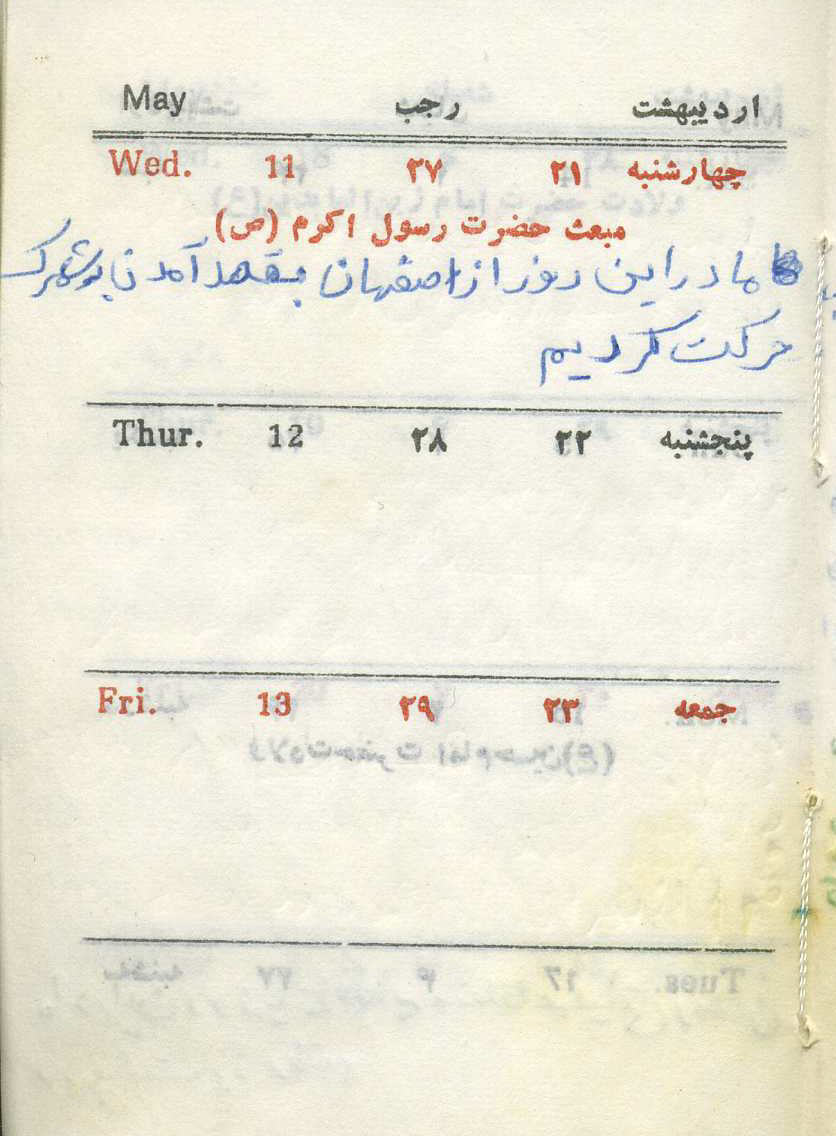 اردیبهشت رجب May
چهارشنبه ۲۱ ۲۷ 11 Wed.
مبعث حضرت رسول اکرم (ص)
ما در این روز از اصفهان بقصد آمدن به شهرک
حرکت کردیم
پنجشنبه ۲۲ ۲۸ 12 Thur.
جمعه ۲۳ ۲۹ 13 Fri.